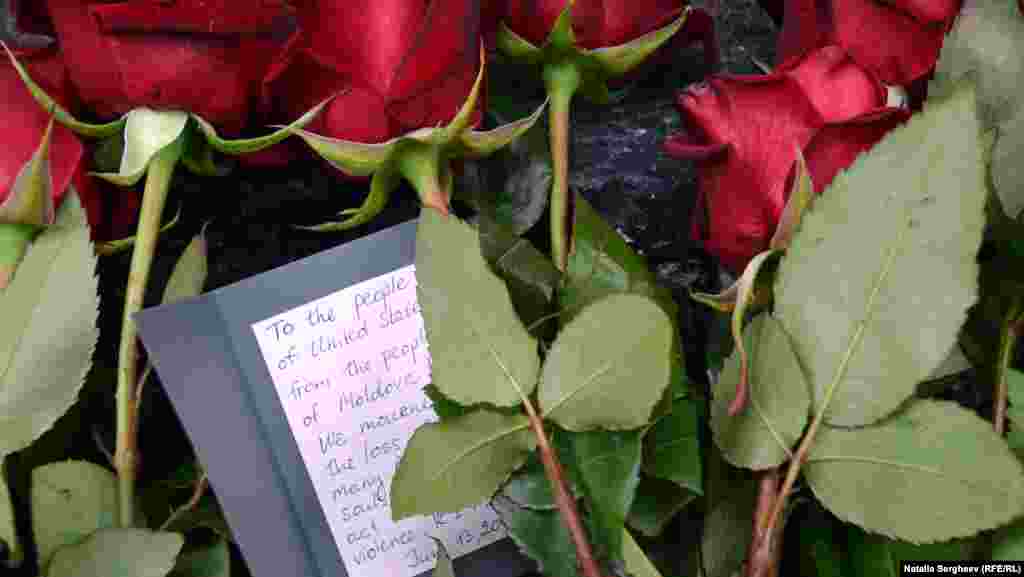 To the people
of United State
from the peopl
of Moldova
We
the loss
many
souls
act
violence
Jun 13, 20
Natalia Sergheev (RFE/RL)